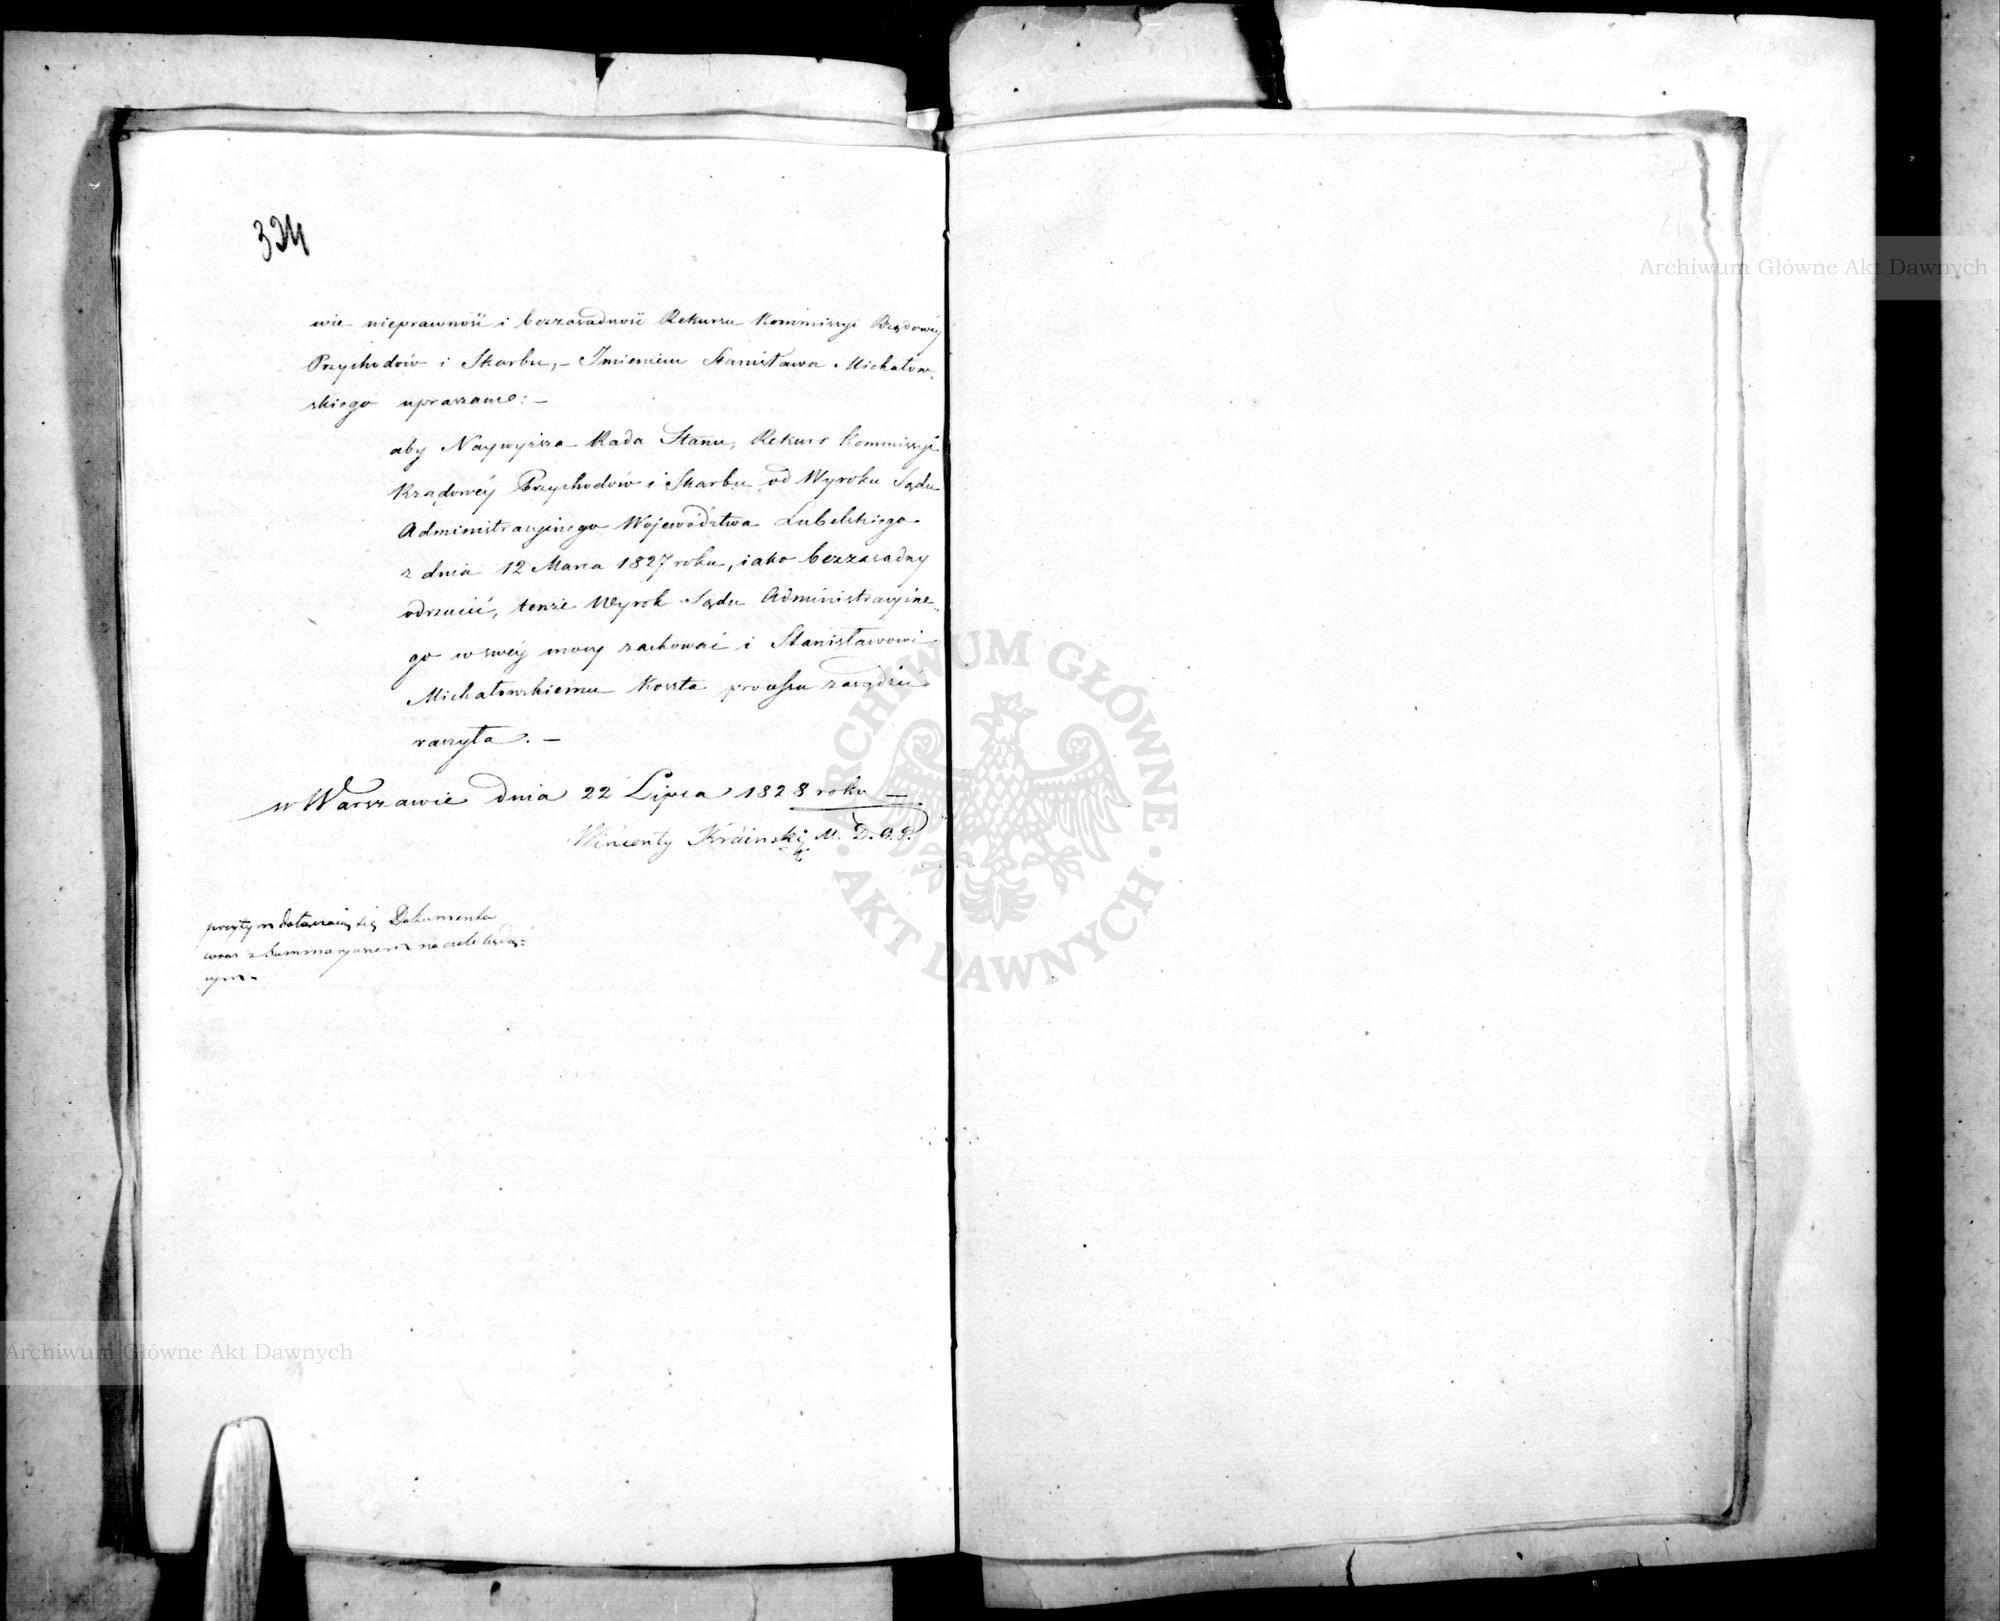 324
wie nieprawność i bezzasadność Rekursu Kommissyi Rządowéy
Przychodów i Skarbu, – Imieniem Stanisława Michałow-
skiego upraszamo: –
aby Naywyższa Rada Stanu, Rekurs Kommissyi
Rządowéy Przychodów i Skarbu od Wyroku Sądu
Administracyinego Województwa Lubelskiego
z dnia 12 Marca 1827 roku, iako bezzasadny
odrzucić, tenże Wyrok Sądu Administracyine-
go w swéy mocy zachować i Stanisławowi
Michałowskiemu Koszta processu zasądzić
raczyła. –
w Warszawie dnia 22 Lipca 1828 roku –
Wincenty Kraiński M. D. O. P.
przytym dołączaią się Dokumenta
wraz z Summaryuszem na czele będą-
cym.
Archiwum Główne Akt Dawnych
Archiwum Główne Akt Dawnych
ARCHIWUM GŁÓWNE
AKT DAWNYCH